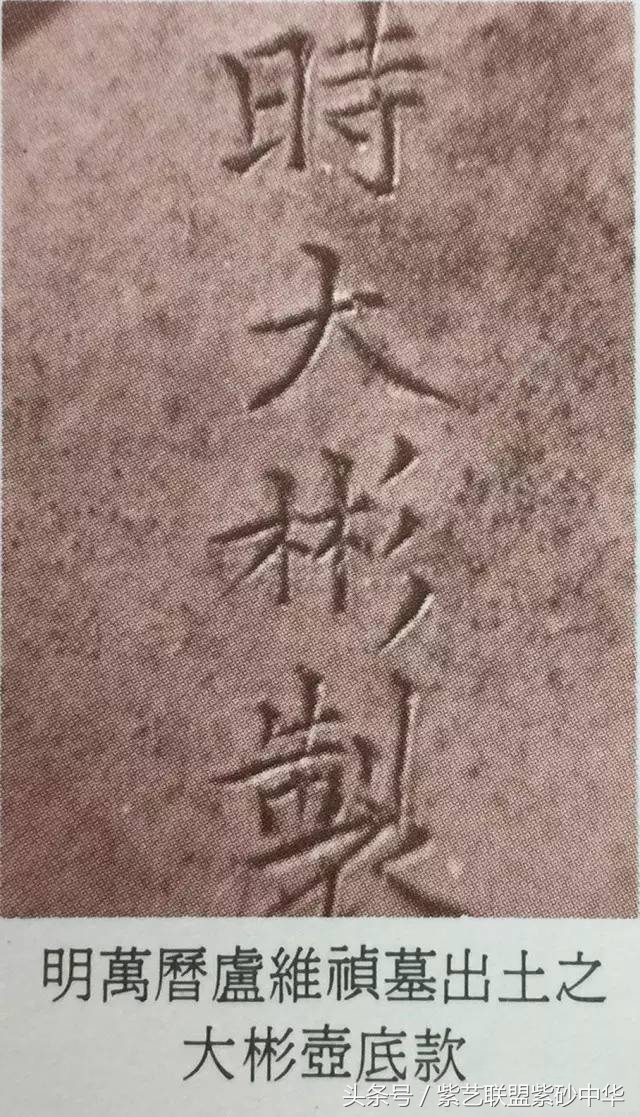 時大彬製
明萬曆盧維禎墓出土之
大彬壺底款
头条号 / 紫艺联盟紫砂中华